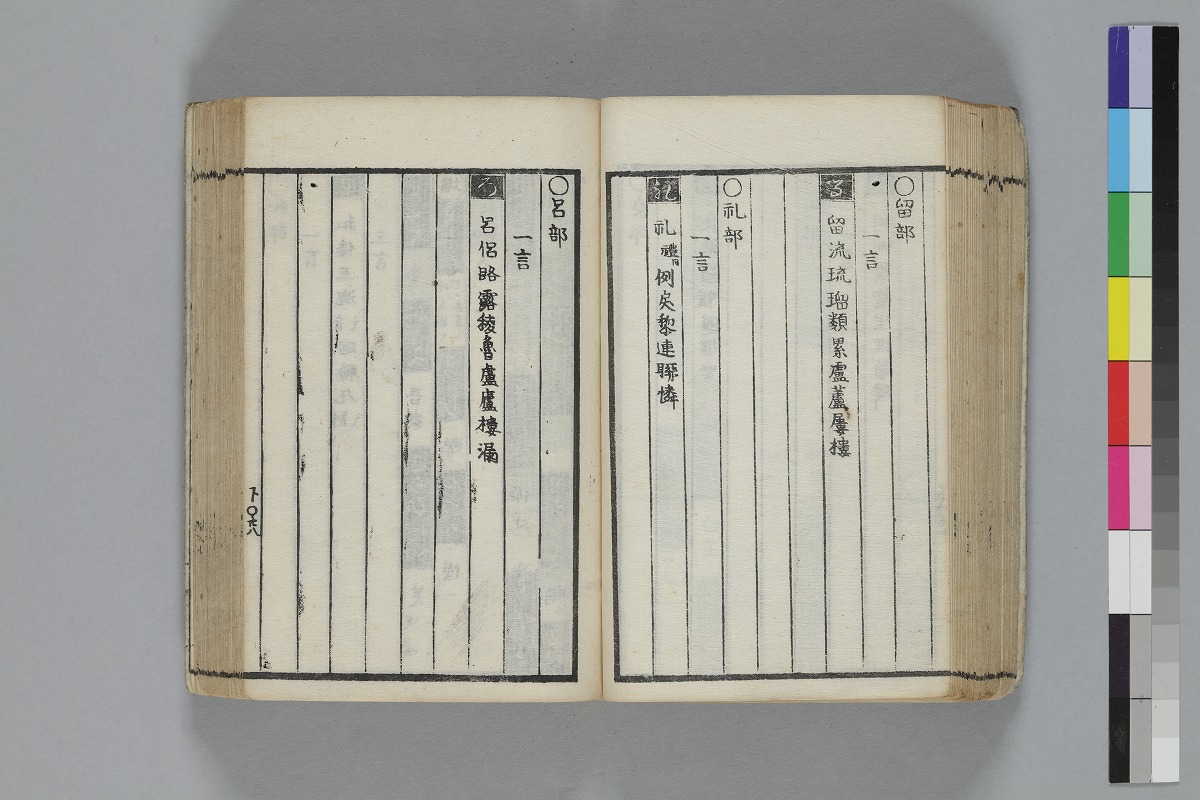 〇留部
一言
る 留流琉瑠類累盧蘆屢樓
〇礼部
一言
礼 礼禮例戾黎連聯憐
〇呂部
一言
ろ 呂侶路露稜魯盧廬樓漏